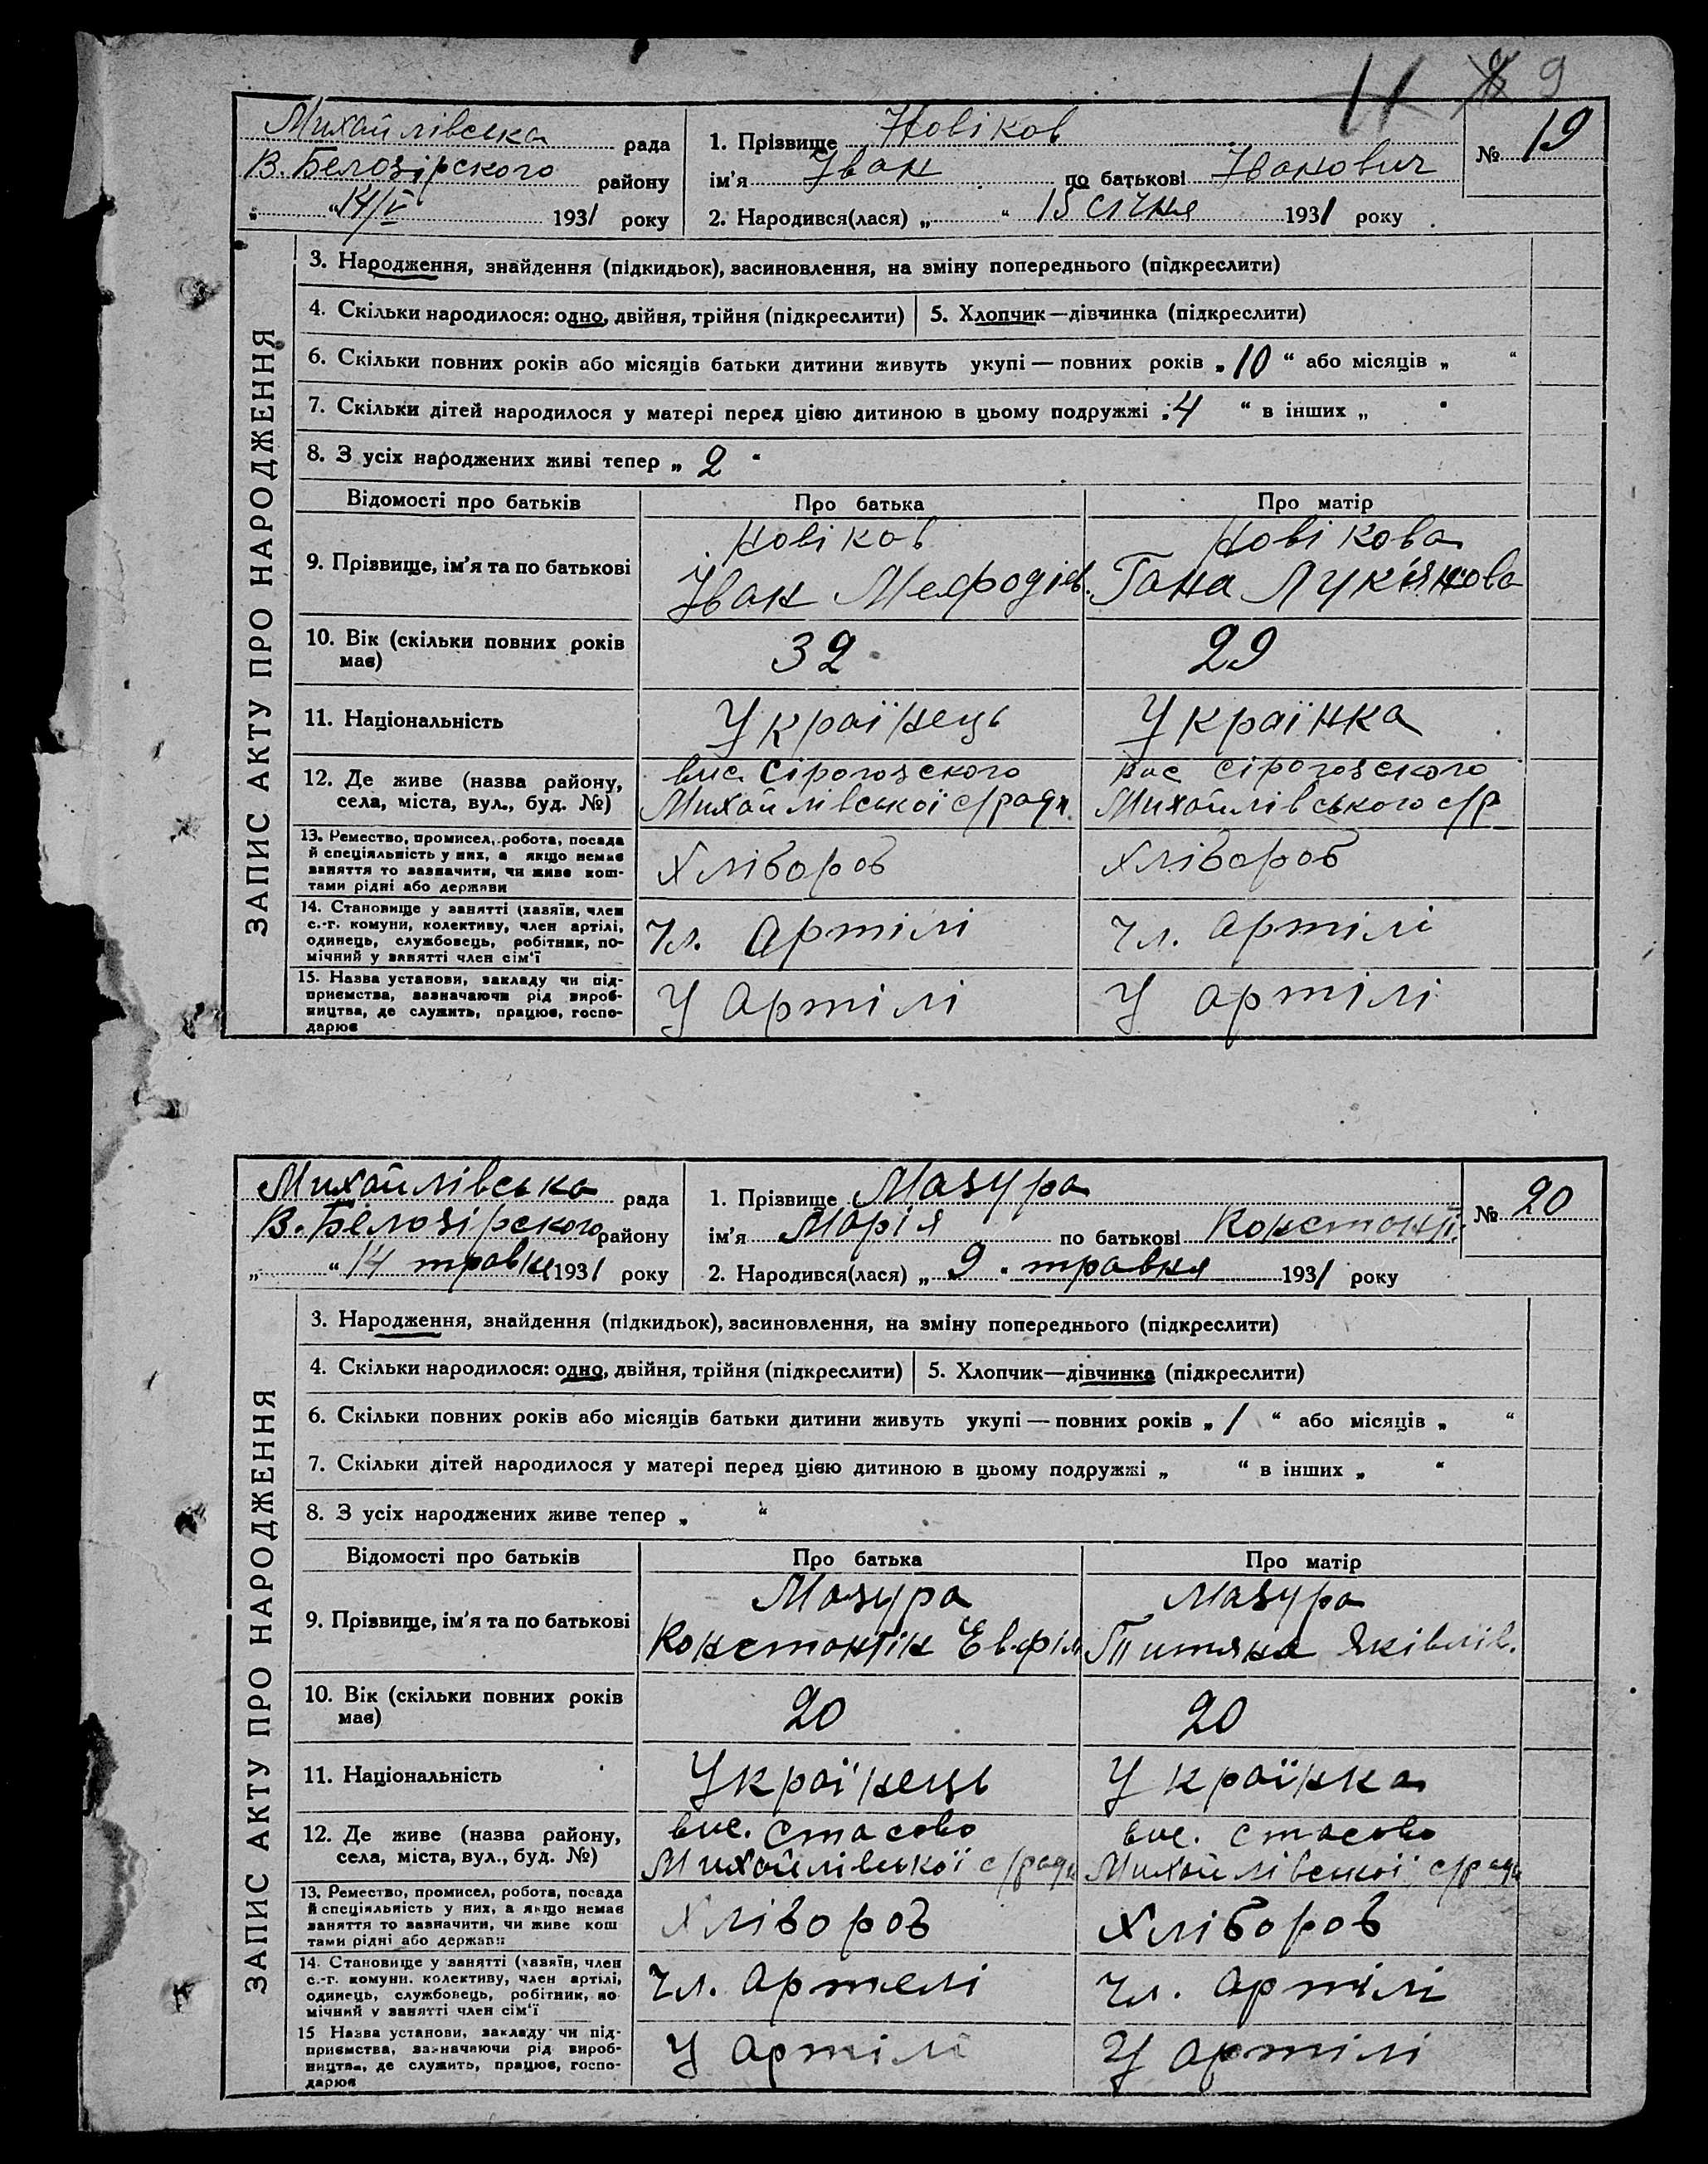 9
Михайлівська рада
В. Белозірского району
„ “ 14/V 1931 року
1. Прізвище Новіков
ім’я Іван по батькові Іванович
2. Народився(лася) „ “ 15 січня 1931 року
№ 19
ЗАПИС АКТУ ПРО НАРОДЖЕННЯ
3. Народження, знайдення (підкидьок), засиновлення, на зміну попереднього (підкреслити)
4. Скільки народилося: одно, двійня, трійня (підкреслити) 5. Хлопчик—дівчинка (підкреслити)
6. Скільки повних років або місяців батьки дитини живуть укупі — повних років „ 10 “ або місяців „ “
7. Скільки дітей народилося у матері перед цією дитиною в цьому подружжі „ 4 “ в інших „ “
8. З усіх народжених живі тепер „ 2 “
Відомості про батьків Про батька Про матір
9. Прізвище, ім’я та по батькові
Новіков
Іван Мефодіев.
Новікова
Гана Лук'янова
10. Вік (скільки повних років
має)
32
29
11. Національність
Українець
Українка
12. Де живе (назва району,
села, міста, вул., буд. №)
вис. Сірогозского
Михайлівської с/ради
вис Сірогозского
Михайлівського с/р
13. Ремество, промисел, робота, посада
й спеціяльність у них, а якщо немає
заняття то зазначити, чи живе кош-
тами рідні або держави
Хлібороб
Хлібороб
14. Становище у занятті (хазяїн, член
с.-г. комуни, колективу, член артілі,
одинець, службовець, робітник, по-
мічний у занятті член сім’ї
Чл. Артілі
Чл. Артілі
15. Назва установи, закладу чи під-
приємства, зазначаючи рід вироб-
ництва, де служить, працює, госпо-
дарює
У Артілі
У артілі
Михайлівська рада
В. Белозірского району
„ “ 14 травня 1931 року
1. Прізвище Мазура
ім’я Марія по батькові Константі.
2. Народився(лася) „ 9 “ травня 1931 року
№ 20
ЗАПИС АКТУ ПРО НАРОДЖЕННЯ
3. Народження, знайдення (підкидьок), засиновлення, на зміну попереднього (підкреслити)
4. Скільки народилося: одно, двійня, трійня (підкреслити) 5. Хлопчик—дівчинка (підкреслити)
6. Скільки повних років або місяців батьки дитини живуть укупі — повних років „ 1 “ або місяців „ “
7. Скільки дітей народилося у матері перед цією дитиною в цьому подружжі „ “ в інших „ “
8. З усіх народжених живе тепер „ “
Відомості про батьків Про батька Про матір
9. Прізвище, ім’я та по батькові
Мазура
Константін Евфім
Мазура
Титяна Яківлів.
10. Вік (скільки повних років
має)
20
20
11. Національність
Українець
Українка
12. Де живе (назва району,
села, міста, вул., буд. №)
вис. Стасово
Михайлівської с/ради
вис. Стасово
Михайлівської с/ради
13. Ремество, промисел, робота, посада
й спеціяльність у них, а якщо немає
заняття то зазначити, чи живе кош
тами рідні або держави
Хлібороб
Хлібороб
14. Становище у занятті (хазяїн, член
с.-г. комуни, колективу, член артілі,
одинець, службовець, робітник, по
мічний у занятті член сім’ї
Чл. Артелі
Чл. Артілі
15 Назва установи, закладу чи під-
приємства, зазначаючи рід вироб-
ництва, де служить, працює, госпо-
дарює
У Артілі
У Артілі